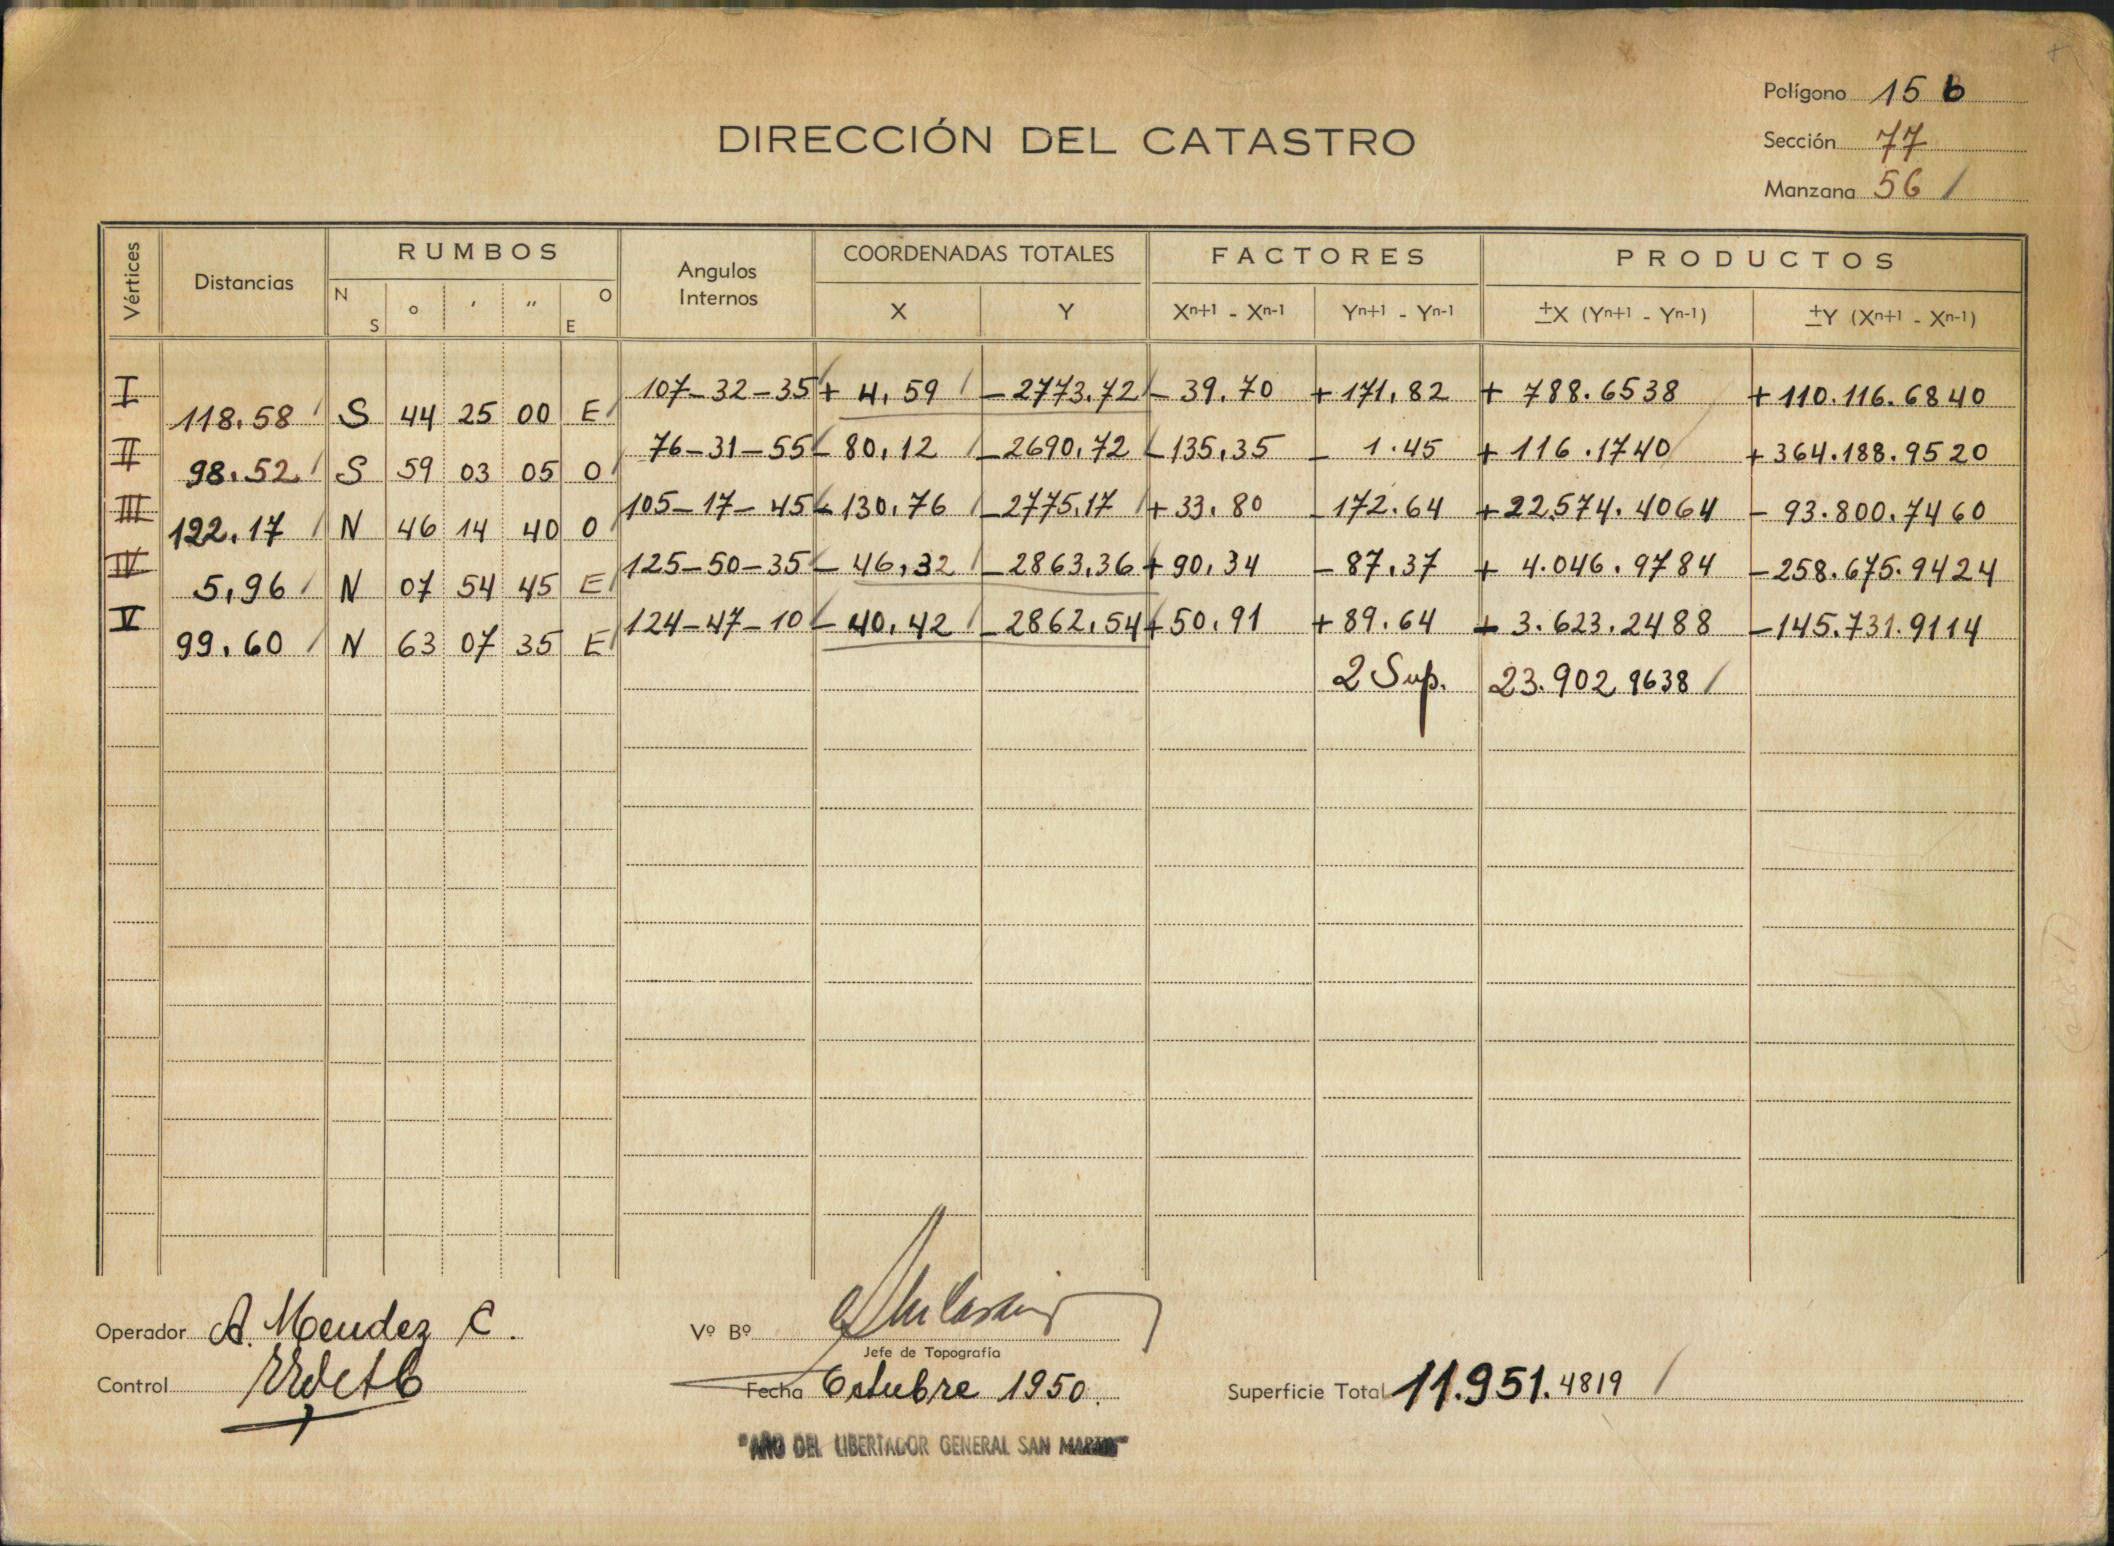 Polígono 15 b
DIRECCIÓN DEL CATASTRO
Sección 77
Manzana 56 /
Vértices Distancias RUMBOS Angulos Internos COORDENADAS TOTALES FACTORES PRODUCTOS
N S ° ' " O E X Y Xn+1 - Xn-1 Yn+1 - Yn-1 ±X (Yn+1 - Yn-1) ±Y (Xn+1 - Xn-1)
I 107-32-35 + 4,59 - 2773,72 - 39.70 + 171,82 + 788.6538 + 110.116.6840
118,58 S 44 25 00 E
II 76-31-55 - 80,12 - 2690,72 - 135,35 - 1.45 + 116.1740 + 364.188.9520
98.52 S 59 03 05 O
III 105-17-45 - 130,76 - 2775,17 + 33,80 - 172.64 + 22.574.4064 - 93.800.7460
122.17 N 46 14 40 O
IV 125-50-35 - 46,32 - 2863,36 + 90,34 - 87,37 + 4.046.9784 - 258.675.9424
5,96 N 07 54 45 E
V 124-47-10 - 40,42 - 2862,54 + 50,91 + 89.64 - 3.623.2488 - 145.731.9114
99.60 N 63 07 35 E
2 Sup. 23.902 9638 /
Operador A. Mendez C.
Vº Bº
Jefe de Topografía
Control
Fecha Octubre 1950.
Superficie Total 11.951.4819 /
"AÑO DEL LIBERTADOR GENERAL SAN MARTIN"